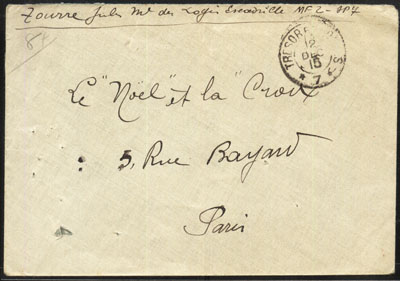 Zourre Jules Mal des Logis Escadrille MF 2 - SP7
TRESOR ET POSTES
12
DEC
15
* 7 *
Le "Noël" et la "Croix"
5, Rue Bayard
Paris